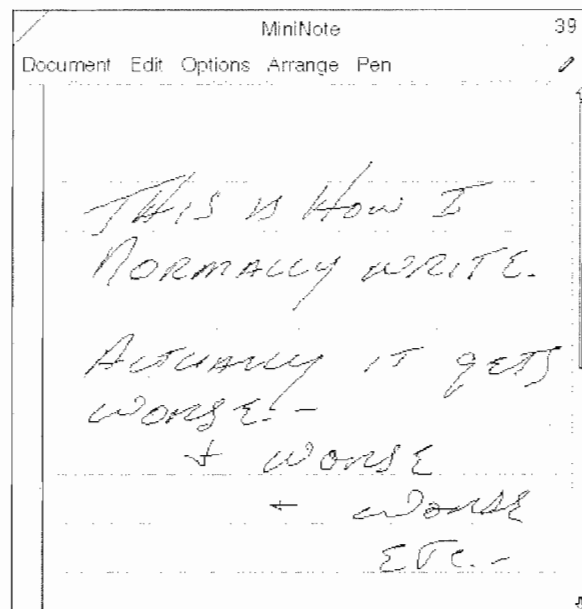 MiniNote 39
Document Edit Options Arrange Pen
THIS IS HOW I
NORMALLY WRITE.
ACTUALLY IT gETS
WORSE:-
+ WORSE
+ WORSE
ETC.-